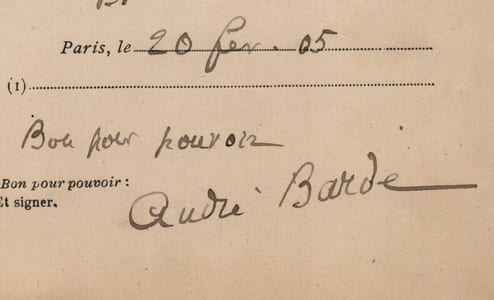 Paris, le 20 fev. 05
(1)
Bon pour pouvoir
Bon pour pouvoir :
Et signer.
André Barde